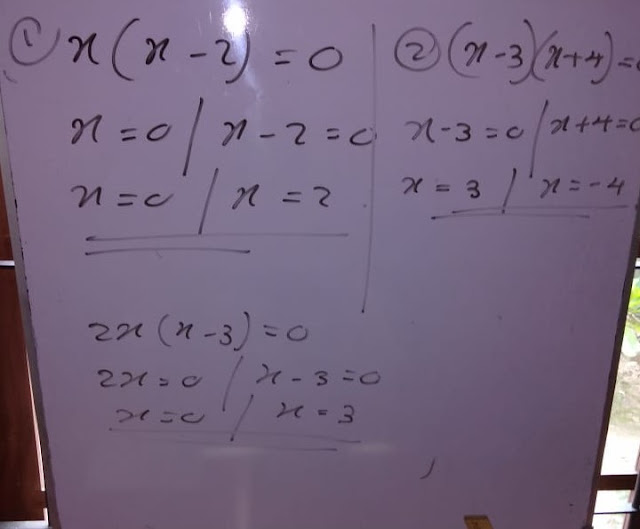 ① x(x-2) = 0
x=0 / x-2=0
x=0 / x=2
② (x-3)(x+4)=0
x-3=0 / x+4=0
x = 3 / x=-4
2x(x-3)=0
2x=0 / x-3=0
x=0 / x=3